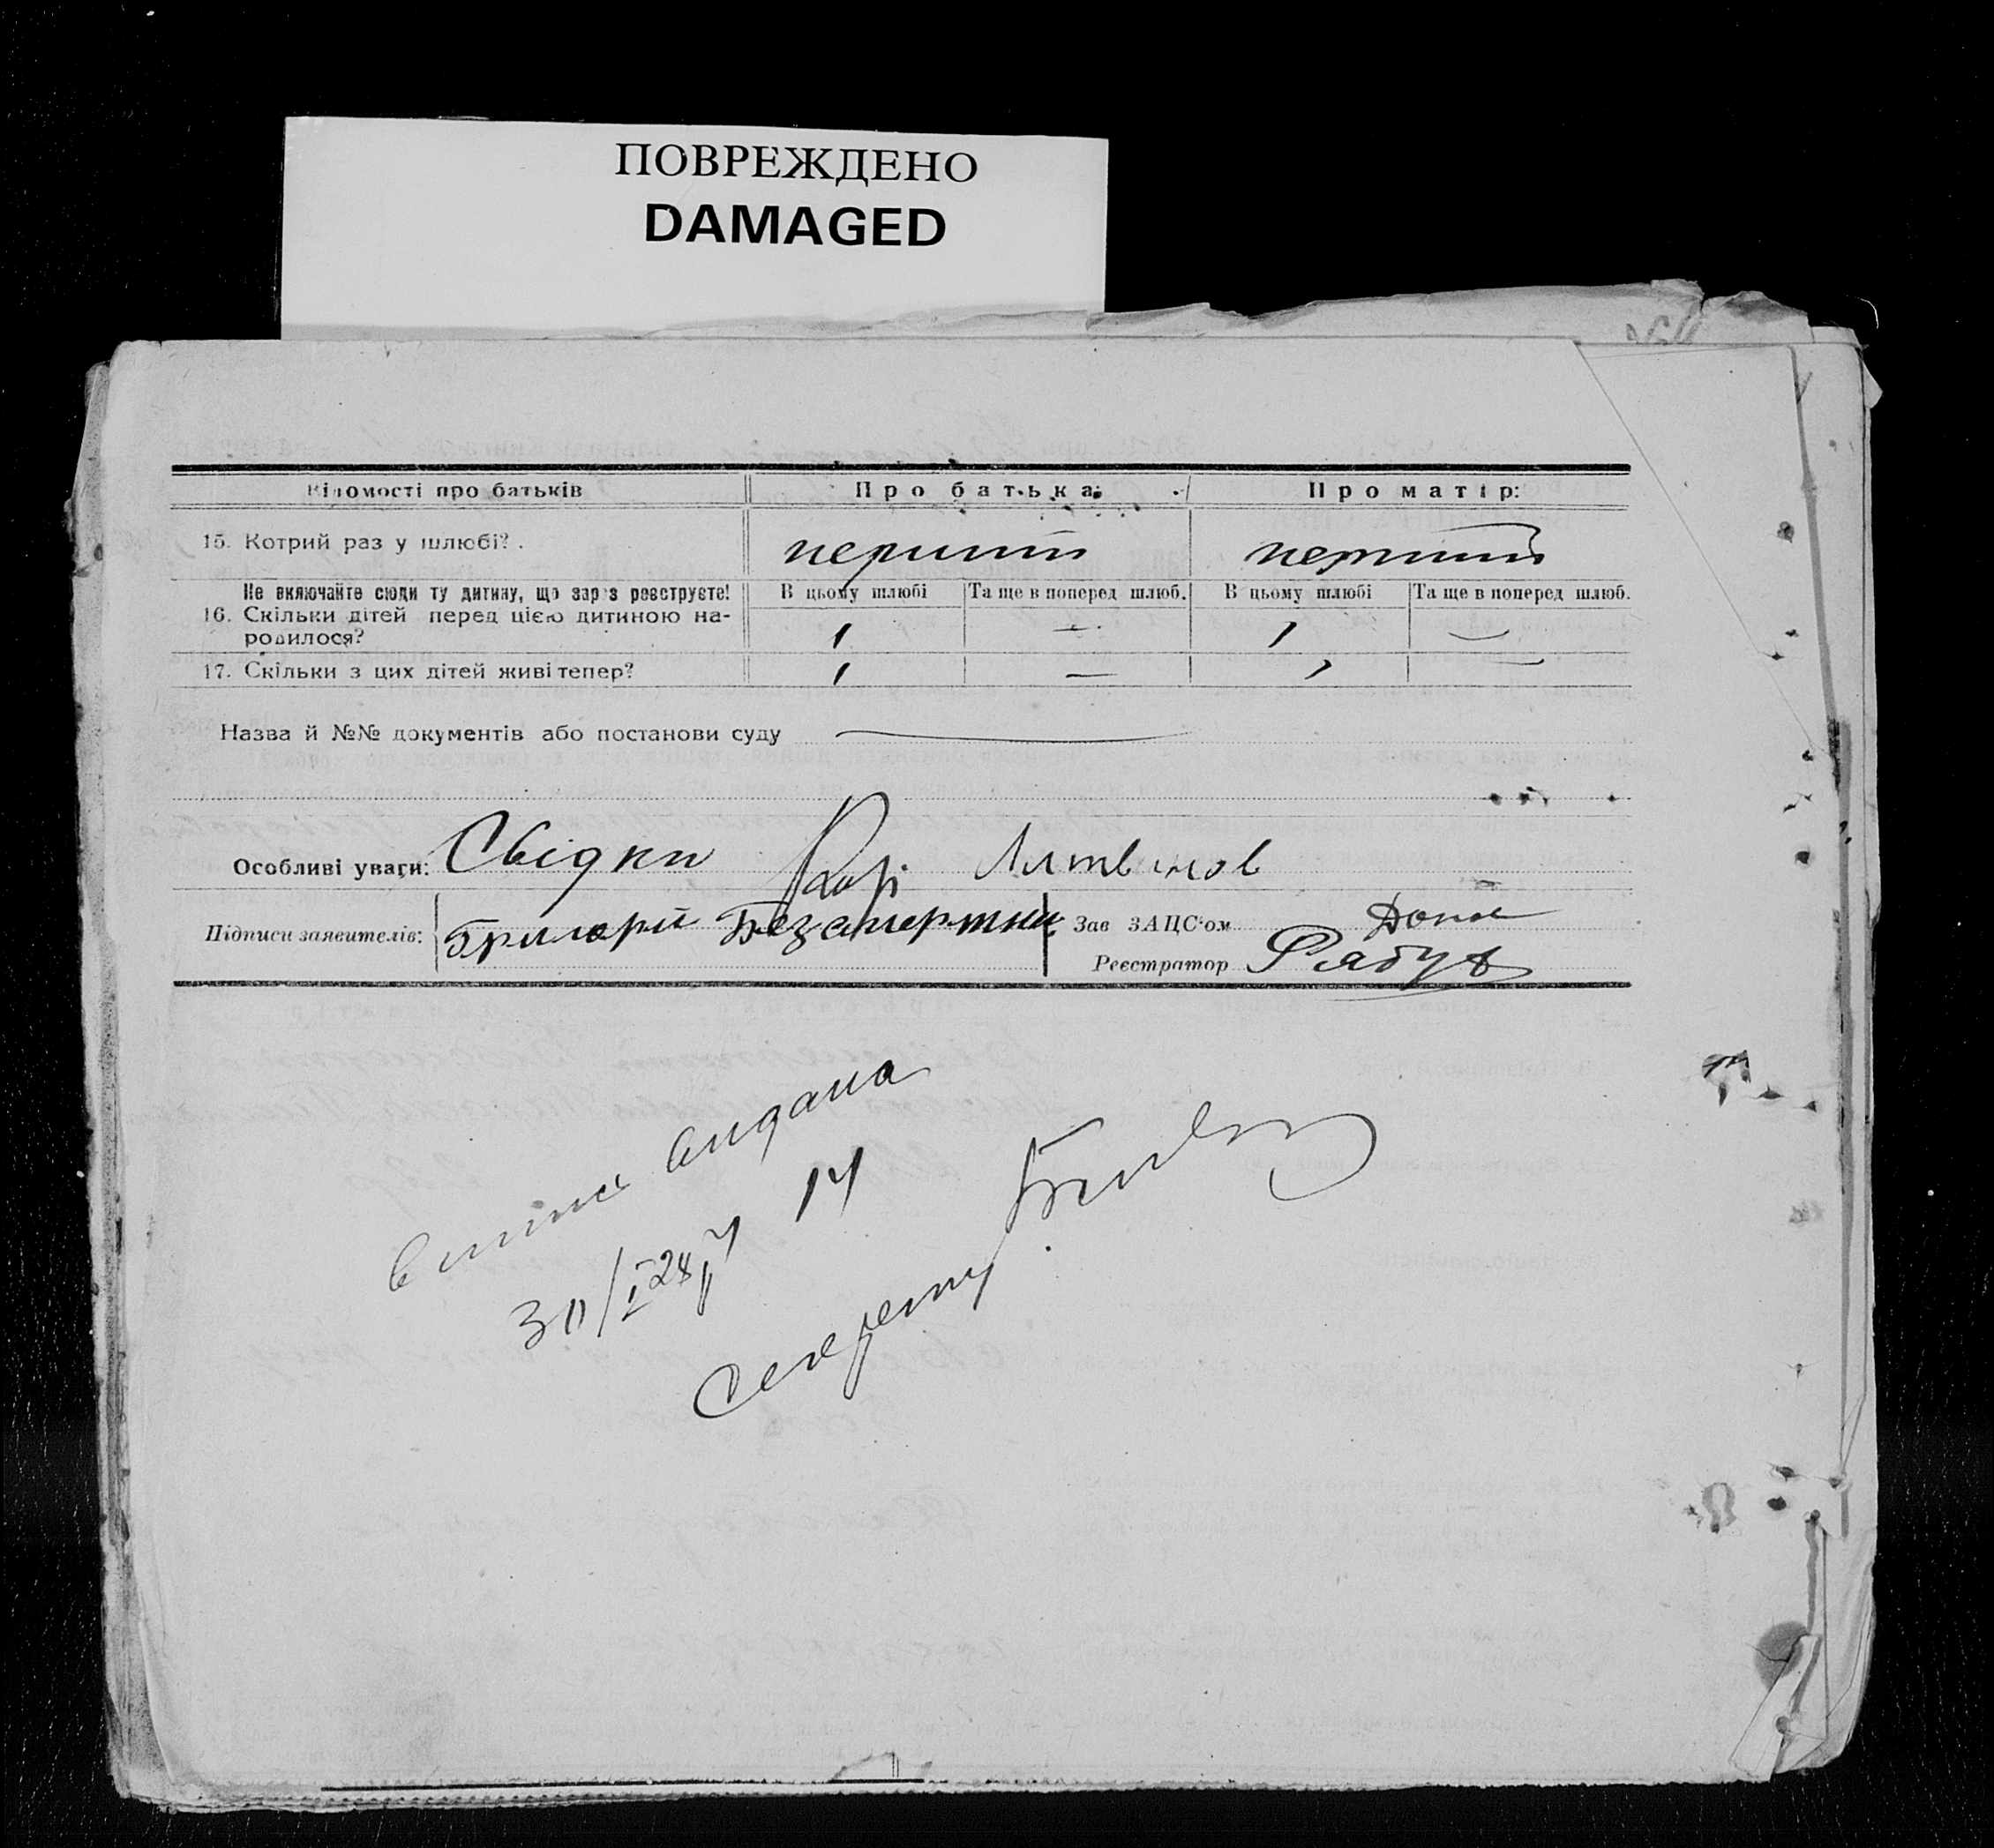 ПОВРЕЖДЕНО
DAMAGED
Відомості про батьків Про батька: Про матір:
15. Котрий раз у шлюбі? перший перший
Не включайте сюди ту дитину, що зараз реєструєте! В цьому шлюбі Та ще в поперед шлюб. В цьому шлюбі Та ще в поперед шлюб.
16. Скільки дітей перед цією дитиною на-
родилося? 1 — 1 —
17. Скільки з цих дітей живі тепер? 1 — 1 —
Назва й №№ документів або постанови суду —
Особливі уваги: Свідки Литвинов
Підписи заявителів: Григорій Безсмертний Зав ЗАЦС'ом
Реєстратор Рябух
видана
30/I 28 14
Секретар